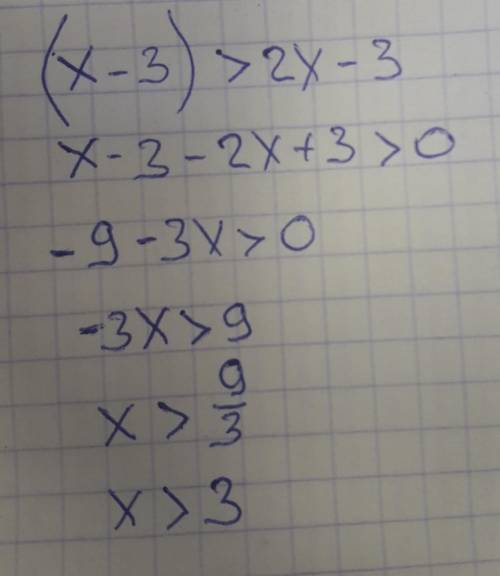 (x - 3) > 2x - 3
x - 3 - 2x + 3 > 0
- 9 - 3x > 0
-3x > 9
x > 9/3
x > 3